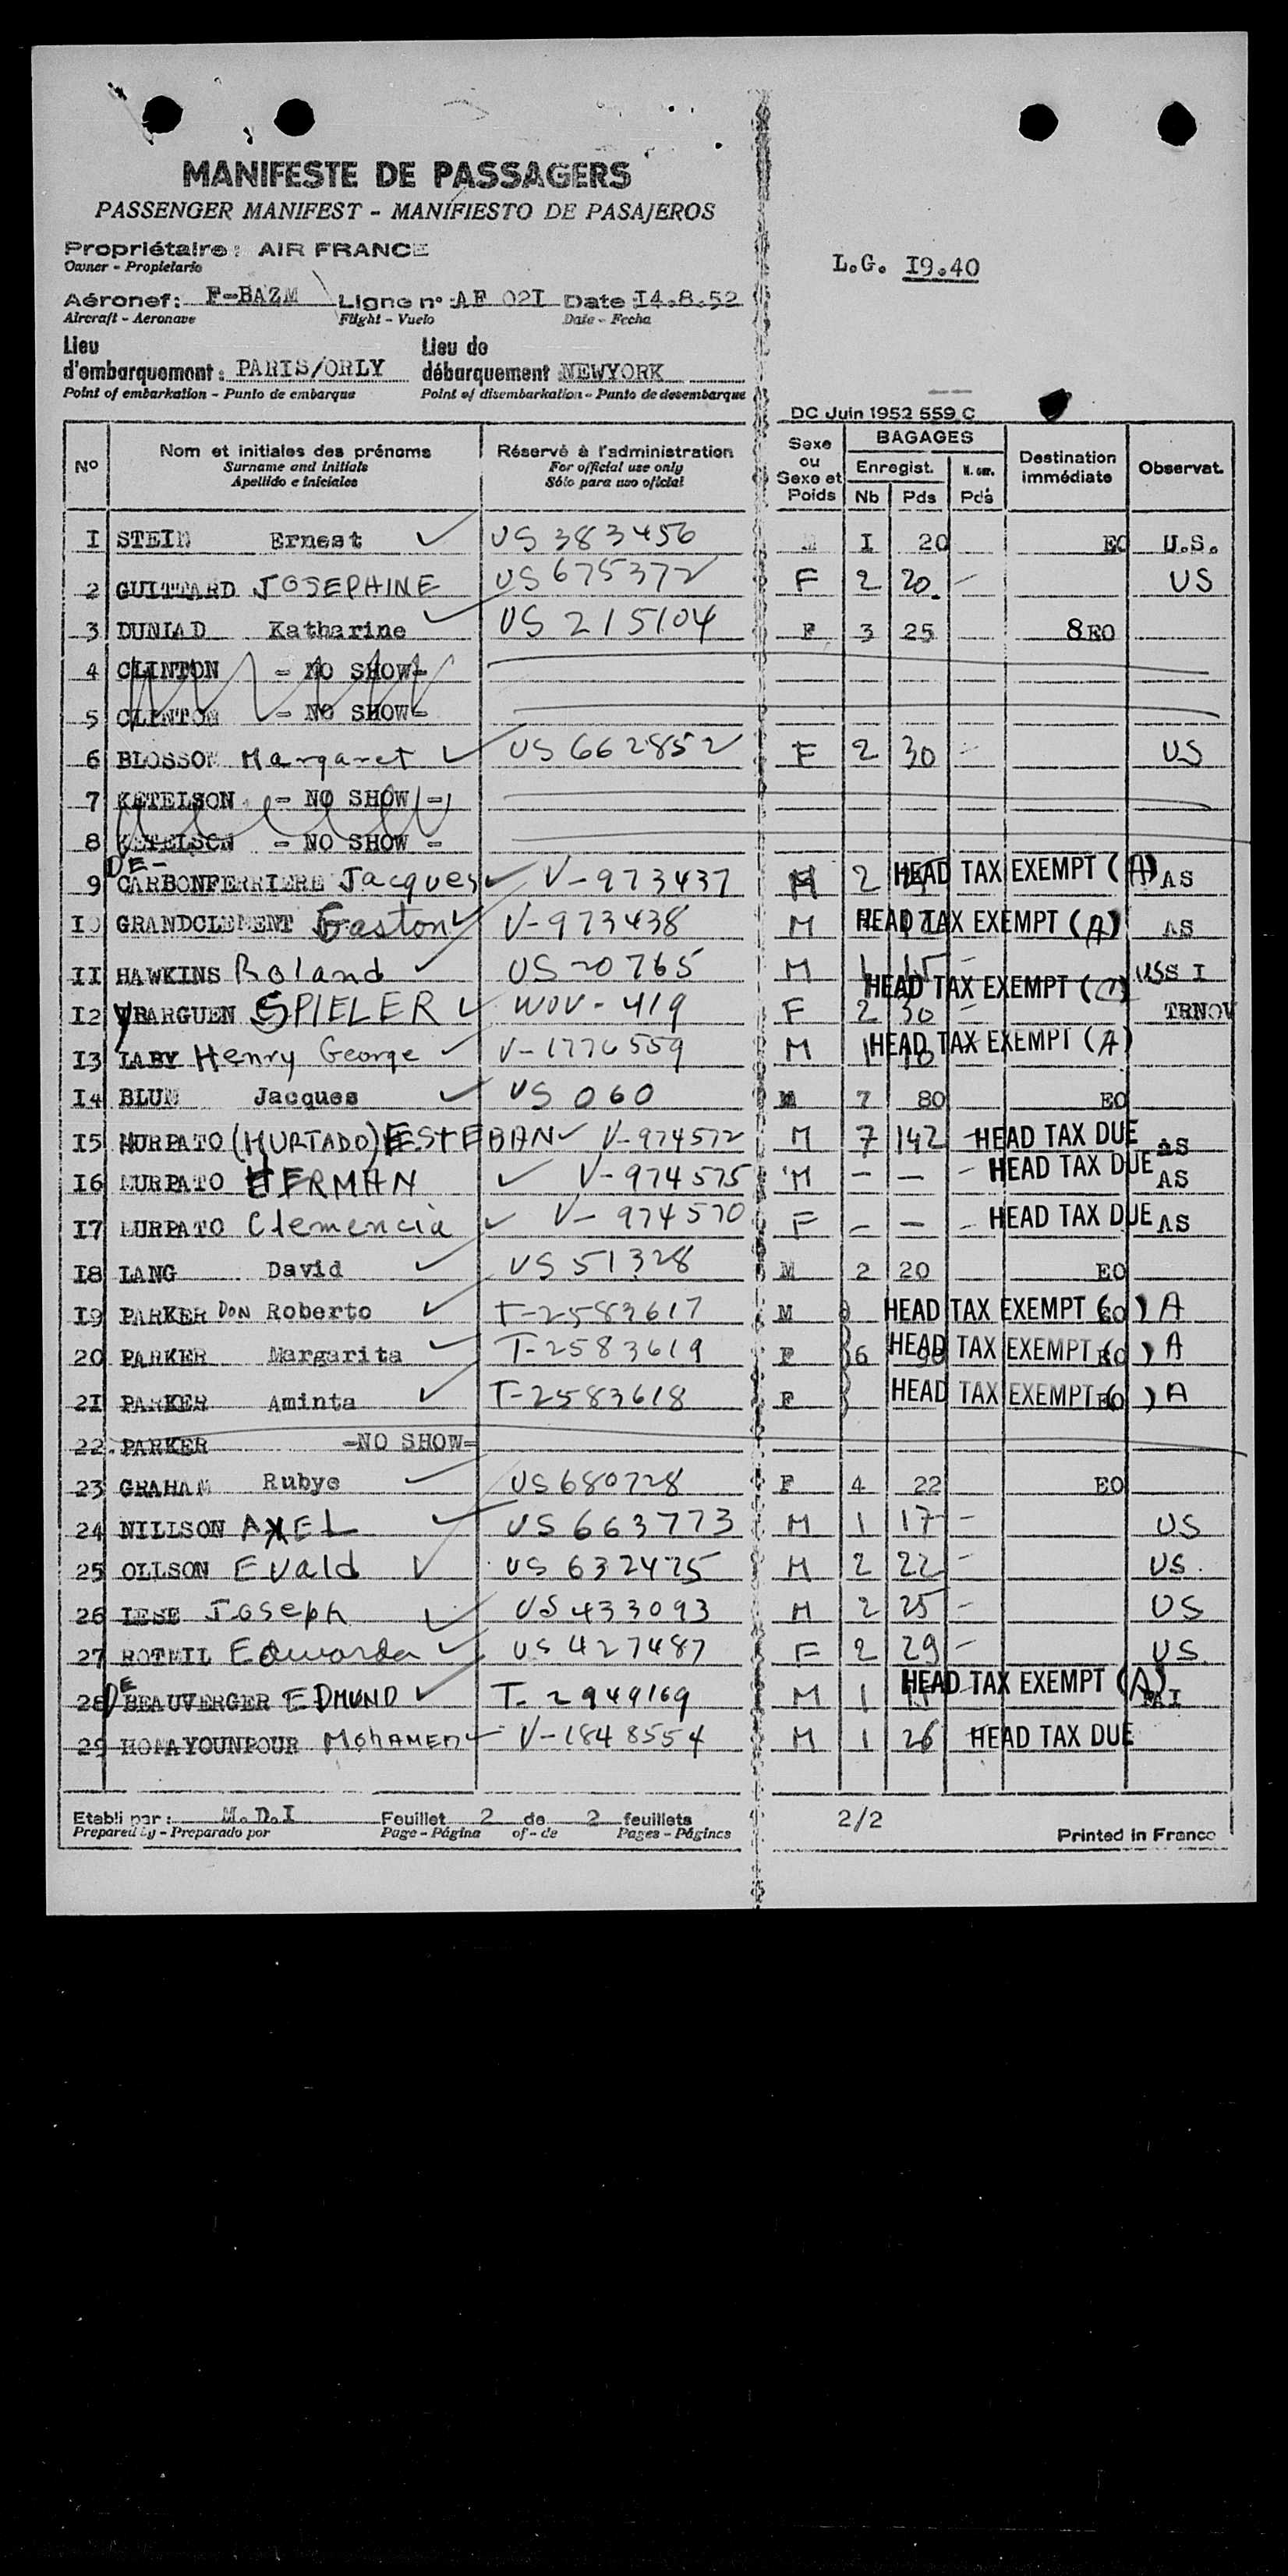 MANIFESTE DE PASSAGERS
PASSENGER MANIFEST - MANIFIESTO DE PASAJEROS
Propriétaire : AIR FRANCE
Owner - Propietario
L.G. I9.40
Aéronef : F-BAZM Ligne n° : AF 02I Date : I4.8.52
Aircraft - Aeronave Flight - Vuelo Date - Fecha
Lieu d'embarquement : PARIS/ORLY Lieu de débarquement : NEWYORK
Point of embarkation - Punto de embarque Point of disembarkation - Punto de desembarque
DC Juin 1952 559 C
N° Nom et initiales des prénoms Réservé à l'administration Sexe ou Sexe et Poids BAGAGES Destination immédiate Observat.
Surname and initials For official use only Enregist. N. enr.
Apellido e iniciales Sólo para uso oficial Nb Pds Pds
I STEIN Ernest ✓ US 383456 M I 20 EO U.S.
2 GUITTARD JOSEPHINE US 675372 F 2 20. - US
3 DUNIAD Katharine ✓ US 215104 F 3 25 8 EO
4 CLINTON - NO SHOW-
5 CLINTON - NO SHOW-
6 BLOSSOM Margaret ✓ US 662852 F 2 30 - US
7 KETELSON - NO SHOW -
8 KETELSON - NO SHOW -
9 DE- CARBONFERRIERE Jacques ✓ V-973437 M 2 HEAD TAX EXEMPT (A) AS
I0 GRANDCLEMENT Gaston ✓ V-973438 M HEAD TAX EXEMPT (A) AS
II HAWKINS Roland ✓ US 20765 M 1 15 - USS I
I2 YBARGUEN SPIELER ✓ WOV-419 F 2 30 - HEAD TAX EXEMPT ( ) TRNOV
I3 LABY Henry George ✓ V-1776559 M 1 HEAD TAX EXEMPT (A)
I4 BLUM Jacques ✓ US 060 M 7 80 EO
I5 HURPATO (HURTADO) ESTEBAN ✓ V-974572 M 7 142 - HEAD TAX DUE AS
I6 HURPATO HERMAN ✓ V-974575 M - - - HEAD TAX DUE AS
I7 HURPATO Clemencia ✓ V-974570 F - - - HEAD TAX DUE AS
I8 LANG David ✓ US 51328 M 2 20 EO
I9 PARKER DON Roberto ✓ T-2583617 M HEAD TAX EXEMPT (EO) A
20 PARKER Margarita ✓ T-2583619 F 6 90 HEAD TAX EXEMPT (EO) A
2I PARKER Aminta ✓ T-2583618 F HEAD TAX EXEMPT (EO) A
22. PARKER -NO SHOW-
23 GRAHAM Rubye ✓ US 680728 F 4 22 EO
24 NILLSON AXEL ✓ US 663773 M 1 17 - US
25 OLLSON Evald ✓ US 632475 M 2 22 - US.
26 LESE Joseph ✓ US 433093 M 2 25 - US
27 ROTMIL Edwarda ✓ US 427487 F 2 29 - US.
28 DE BEAUVERGER EDMUND ✓ T-2949169 M 1 HEAD TAX EXEMPT (A)
29 HOMAYOUNPOUR MOHAMED ✓ V-1848554 M 1 26 HEAD TAX DUE
Etabli par : M.D.I Feuillet 2 de 2 feuillets 2/2
Prepared by - Preparado por Page - Página of - de Pages - Páginas Printed in France